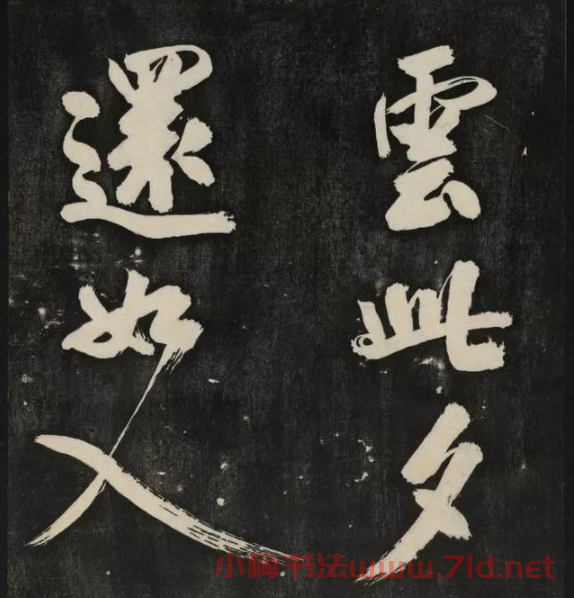 雲此夕
還如入
小梅书法www.7ld.net